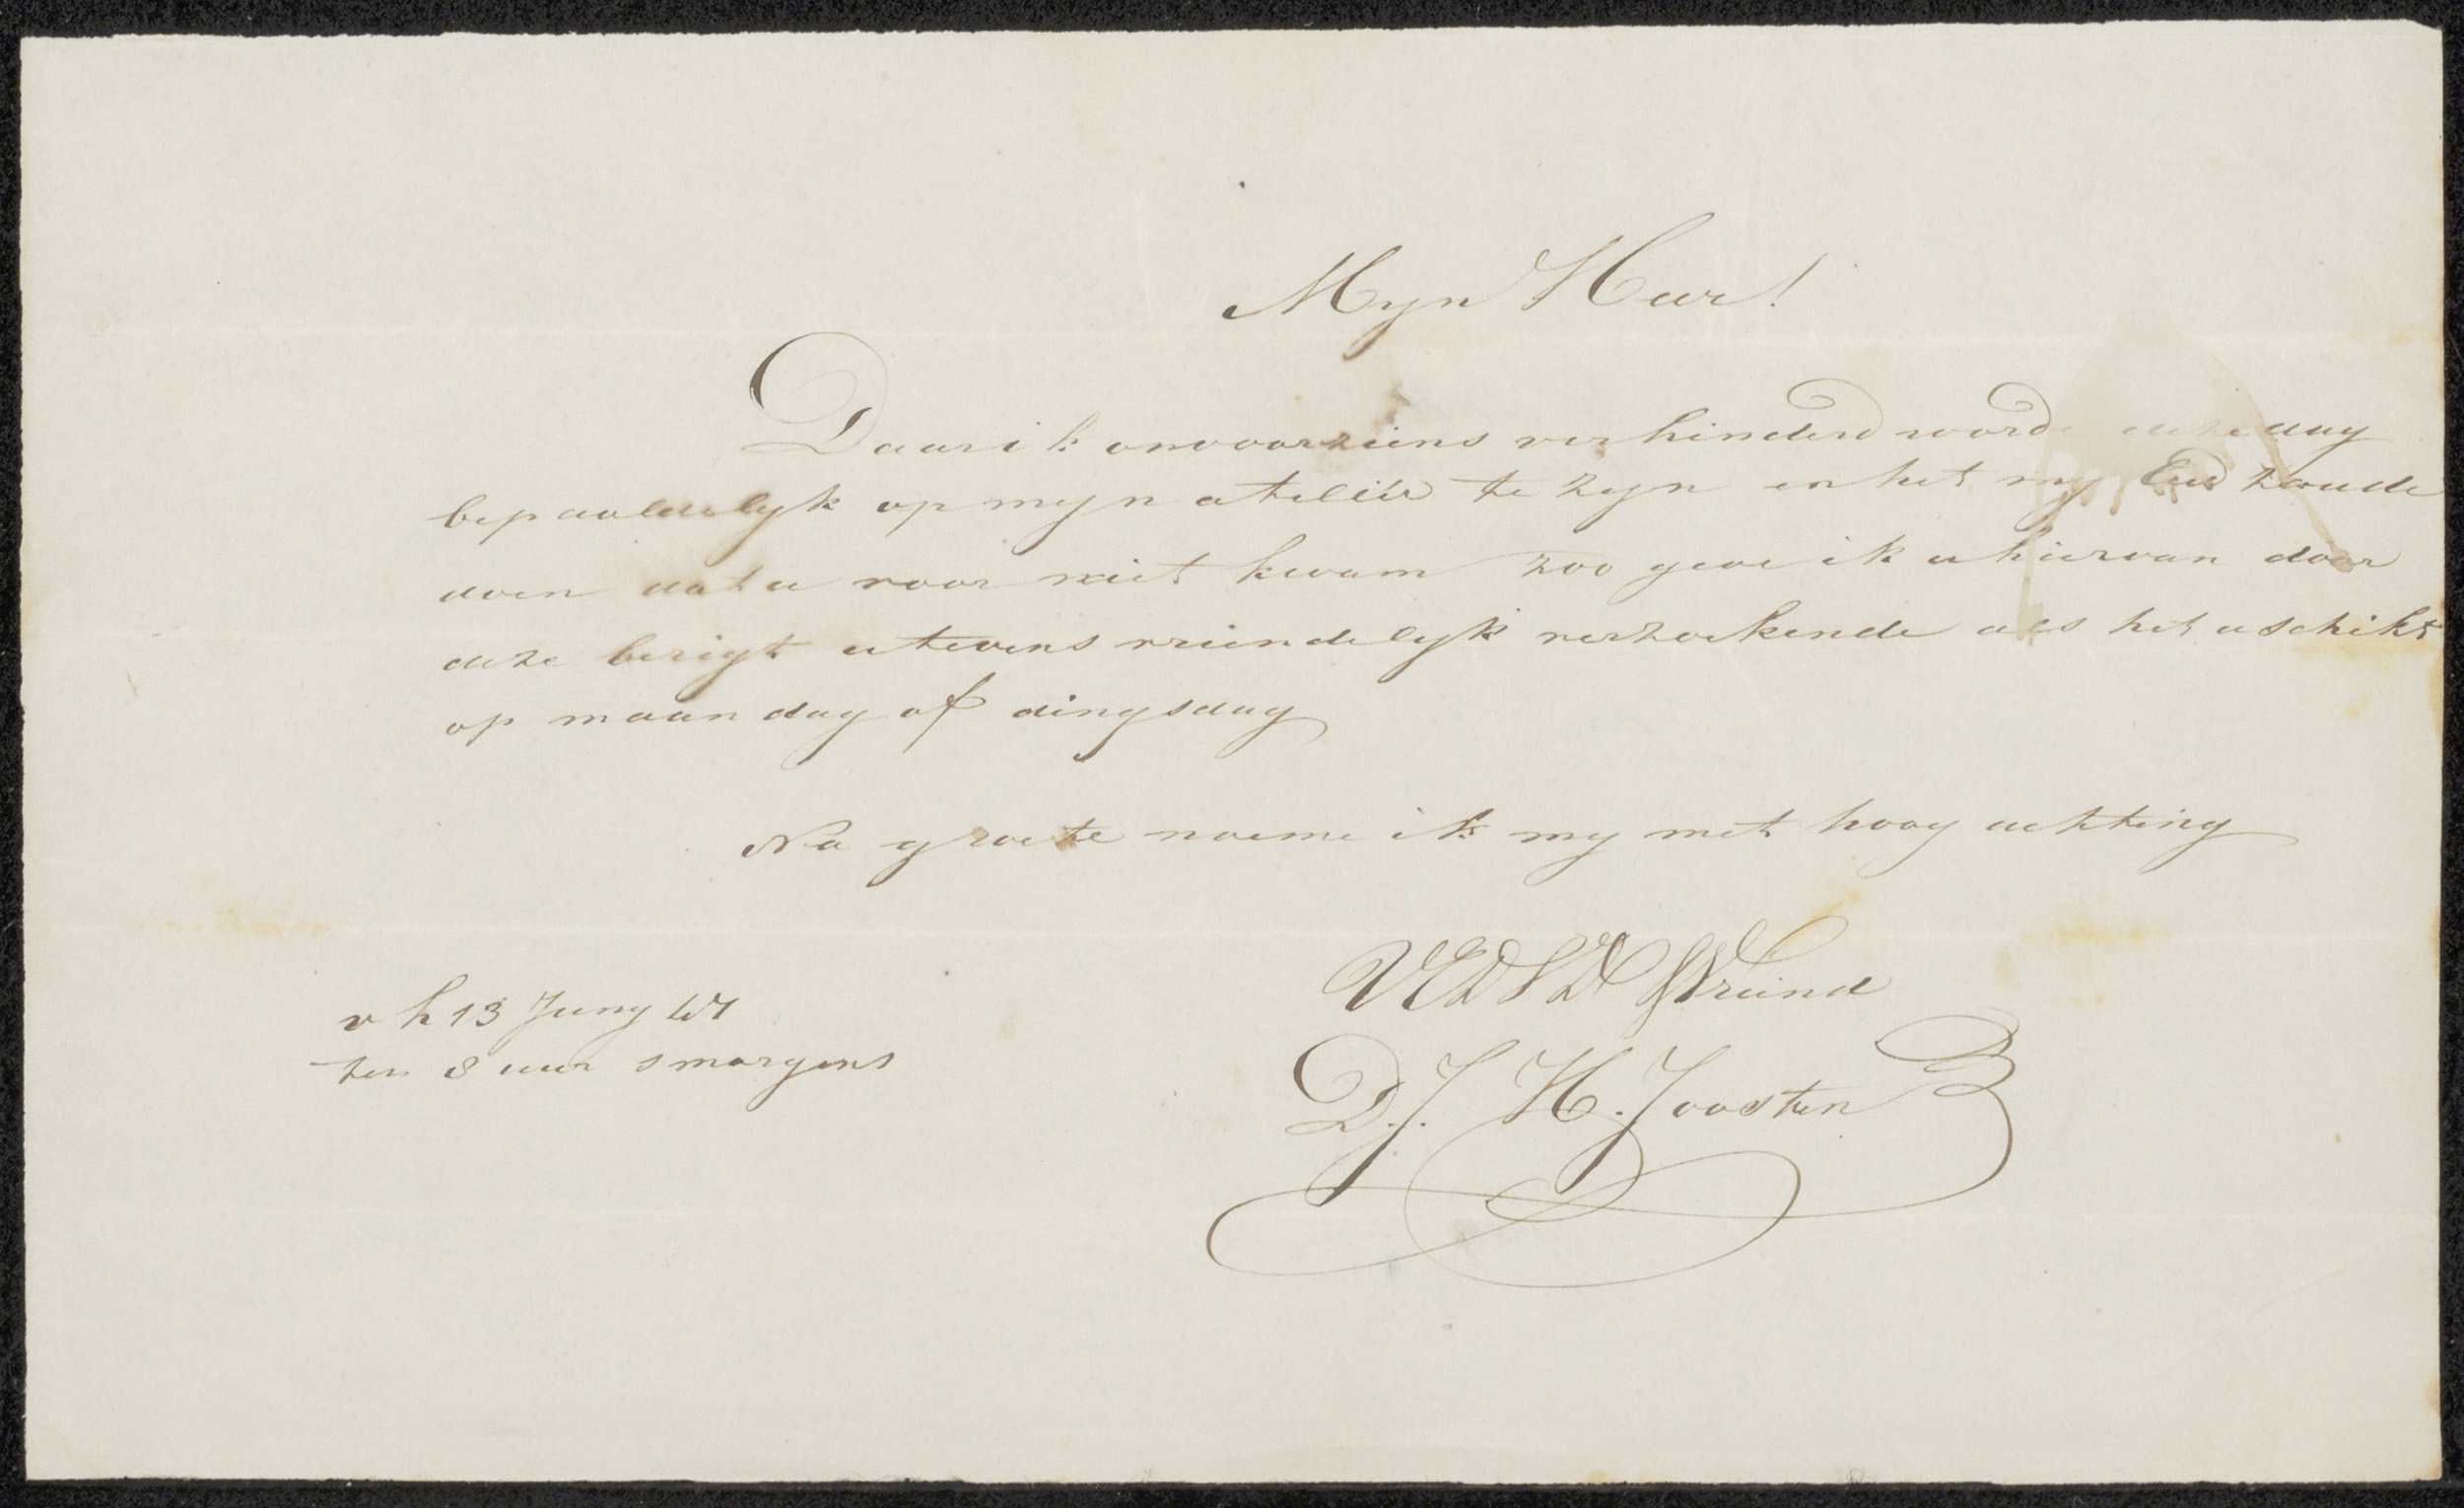 Myn Heer!
Daar ik onvoorziens verhinderd word deze dag
bepaaldelyk op myn atelier te zyn en het my leed zoude
doen dat u voor niet kwam zoo geve ik u hiervan door
deze berigt u tevens vriendelyk verzoekende als het u schikt
op maandag of dingsdag
Na groete noeme ik my met hoog achting
UEDSDW Vriend
D.J. H. Joosten
v h 13 Juny
ten 8 uur smorgens